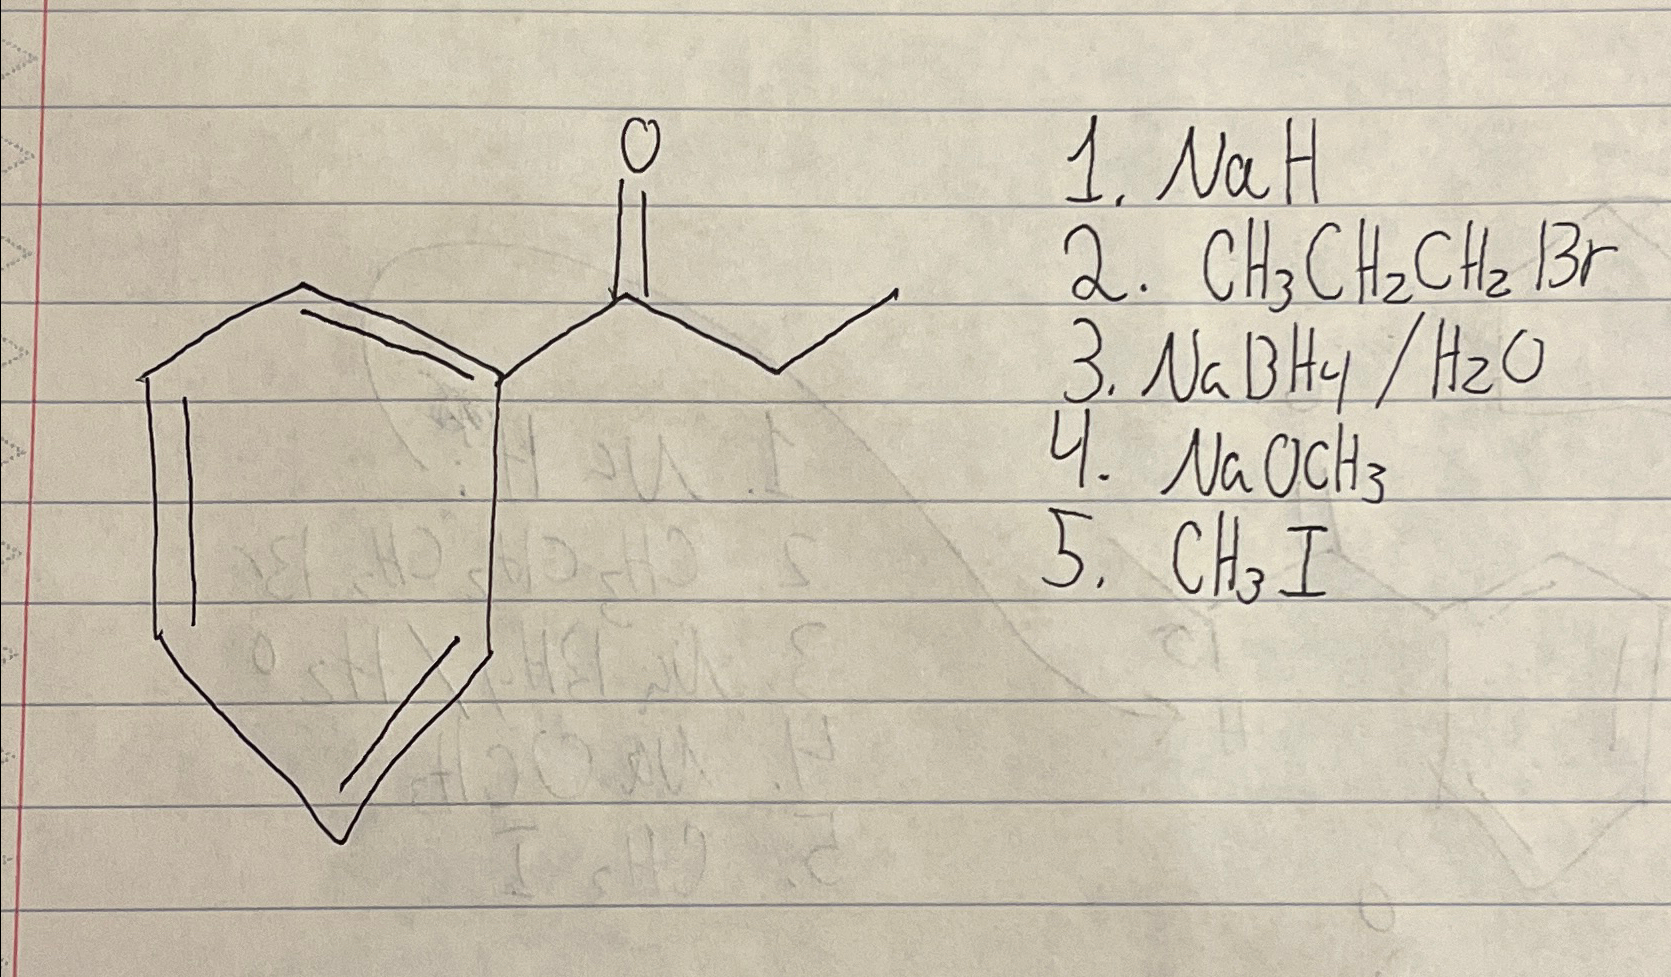 O
1. NaH
2. CH₃CH₂CH₂Br
3. NaBH₄/H₂O
4. NaOCH₃
5. CH₃I